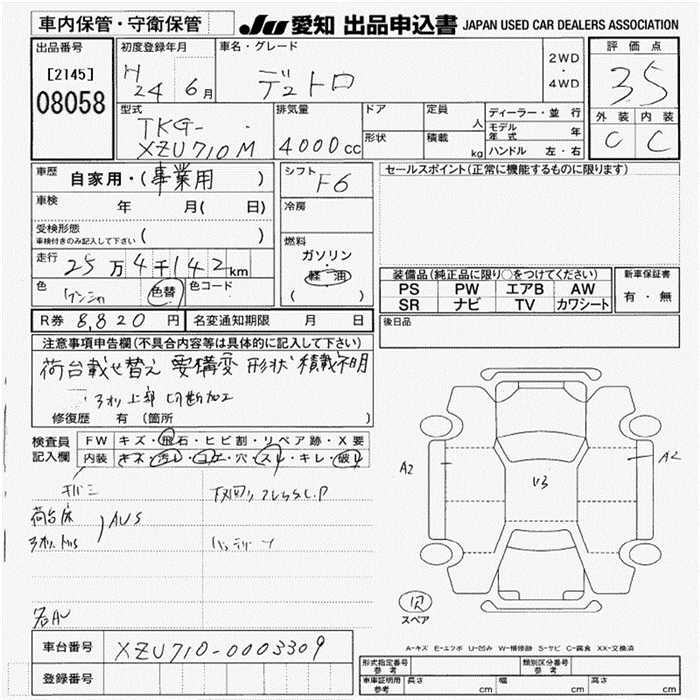 車内保管・守衛保管
JU 愛知 出品申込書 JAPAN USED CAR DEALERS ASSOCIATION
出品番号
[2145]
08058
初度登録年月
H 24 6月
車名・グレード
デュトロ
2WD
・
4WD
評価点
3.5
外装 内装
C C
型式
TKG-
XZU710M
排気量
4000cc
ドア
形状
定員 人
積載 kg
ディーラー・並行
モデル年式 年
ハンドル 左・右
車歴 自家用・(事業用 )
車検 年 月( 日)
受検形態
車検付きのみ記入して下さい ( )
走行 25万4千142km
色
色替
色コード
シフト
F6
冷房
燃料
ガソリン
軽油
( )
セールスポイント(正常に機能するものに限ります)
装備品(純正品に限り○をつけてください)
PS PW エアB AW
SR ナビ TV カワシート
新車保証書
有・無
後日品
R券 8,820円 名変通知期限 月 日
注意事項申告欄(不具合内容等は具体的に記入して下さい)
荷台載せ替え 要構変 形状 積載不明
アオリ上部 切断加工
修復歴 有 (箇所 )
検査員
記入欄
FW キズ・飛石・ヒビ割・リペア跡・X要
内装 キズ・汚レ・コゲ・穴・スレ・キレ・破レ
荷台床
AUS
A2
A2
U3
スペア
A-キズ E-エクボ U-凹み W-補修跡 S-サビ C-腐食 XX-交換済
車台番号 XZU710-0003309
登録番号
形式指定番号 参考
類別区分番号 参考
車庫証明用 参考 長さ cm 幅 cm 高さ cm